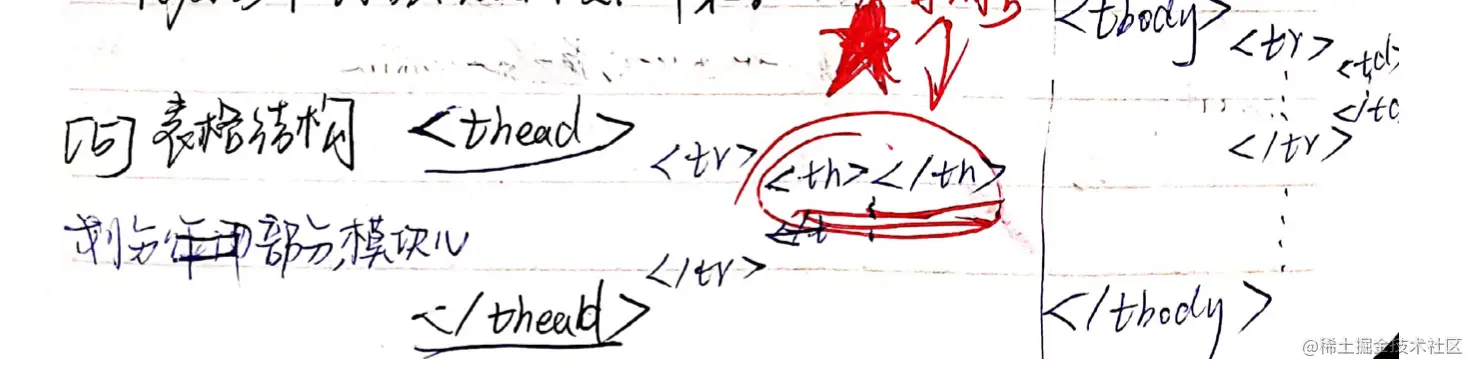 [5] 表格结构 <thead>
<tr>
<th></th>
划分 部分,模块化
</tr>
</thead>
<tbody>
<tr>
<td>
</tr>
</tbody>
@稀土掘金技术社区